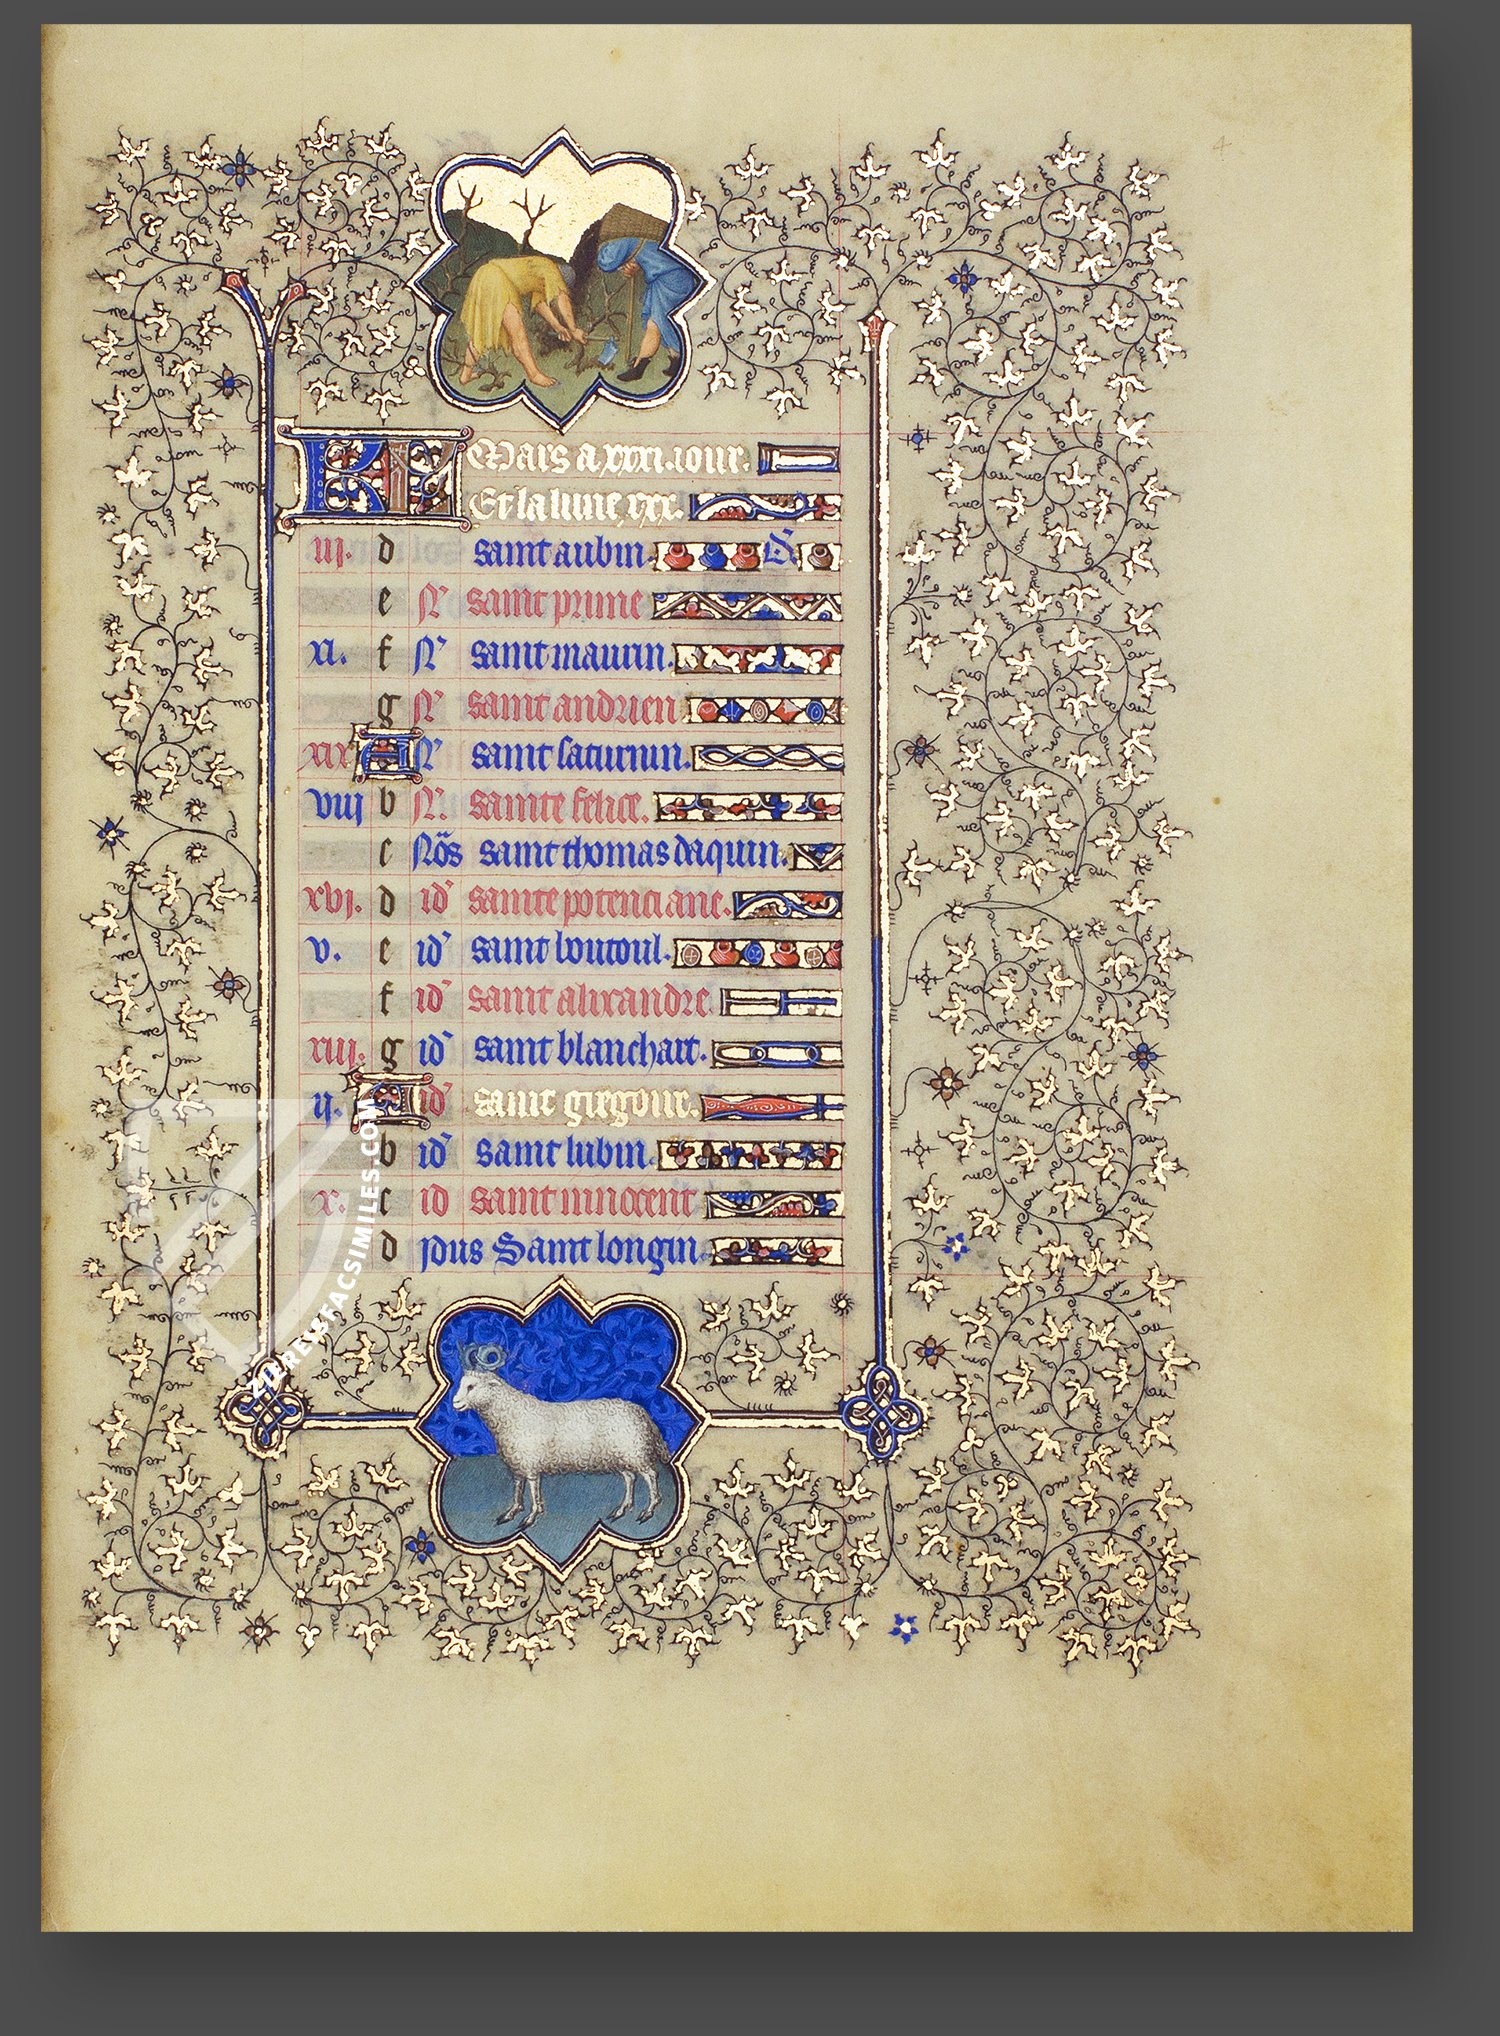 KL Mars a xxxi. iour.
Et la lune, xxx.
iii. d saint aubin. D
e N saint prime
xi. f N saint maurin.
g N saint andrien
xix A N saint saturnin.
viii b N. sainte felice.
c Nõs saint thomas daquin.
xvi. d id sainte potenciane.
v. e id saint boutoul.
f id saint alixandre
xiii. g id saint blanchart.
ii. A id saint gregoire.
b id saint lubin.
x. c id saint innocent
d ydus Saint longin.
ZIEREIS FACSIMILES.COM
4